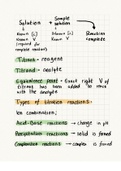 Solution + Simple solution → Reaction complete
↓ ↓
Known (c) Known (c)
Known V Known V
(required for
complete reaction)
Titrant → reagent
Titrand → analyte
Equivalence point → Exact right V of
titrant has been added to react
with the analyte
Types of titration reactions:
Ion combination:
Acid-Base reactions → change in pH
Precipitation reactions → solid is formed
Complexation reactions → complex is formed